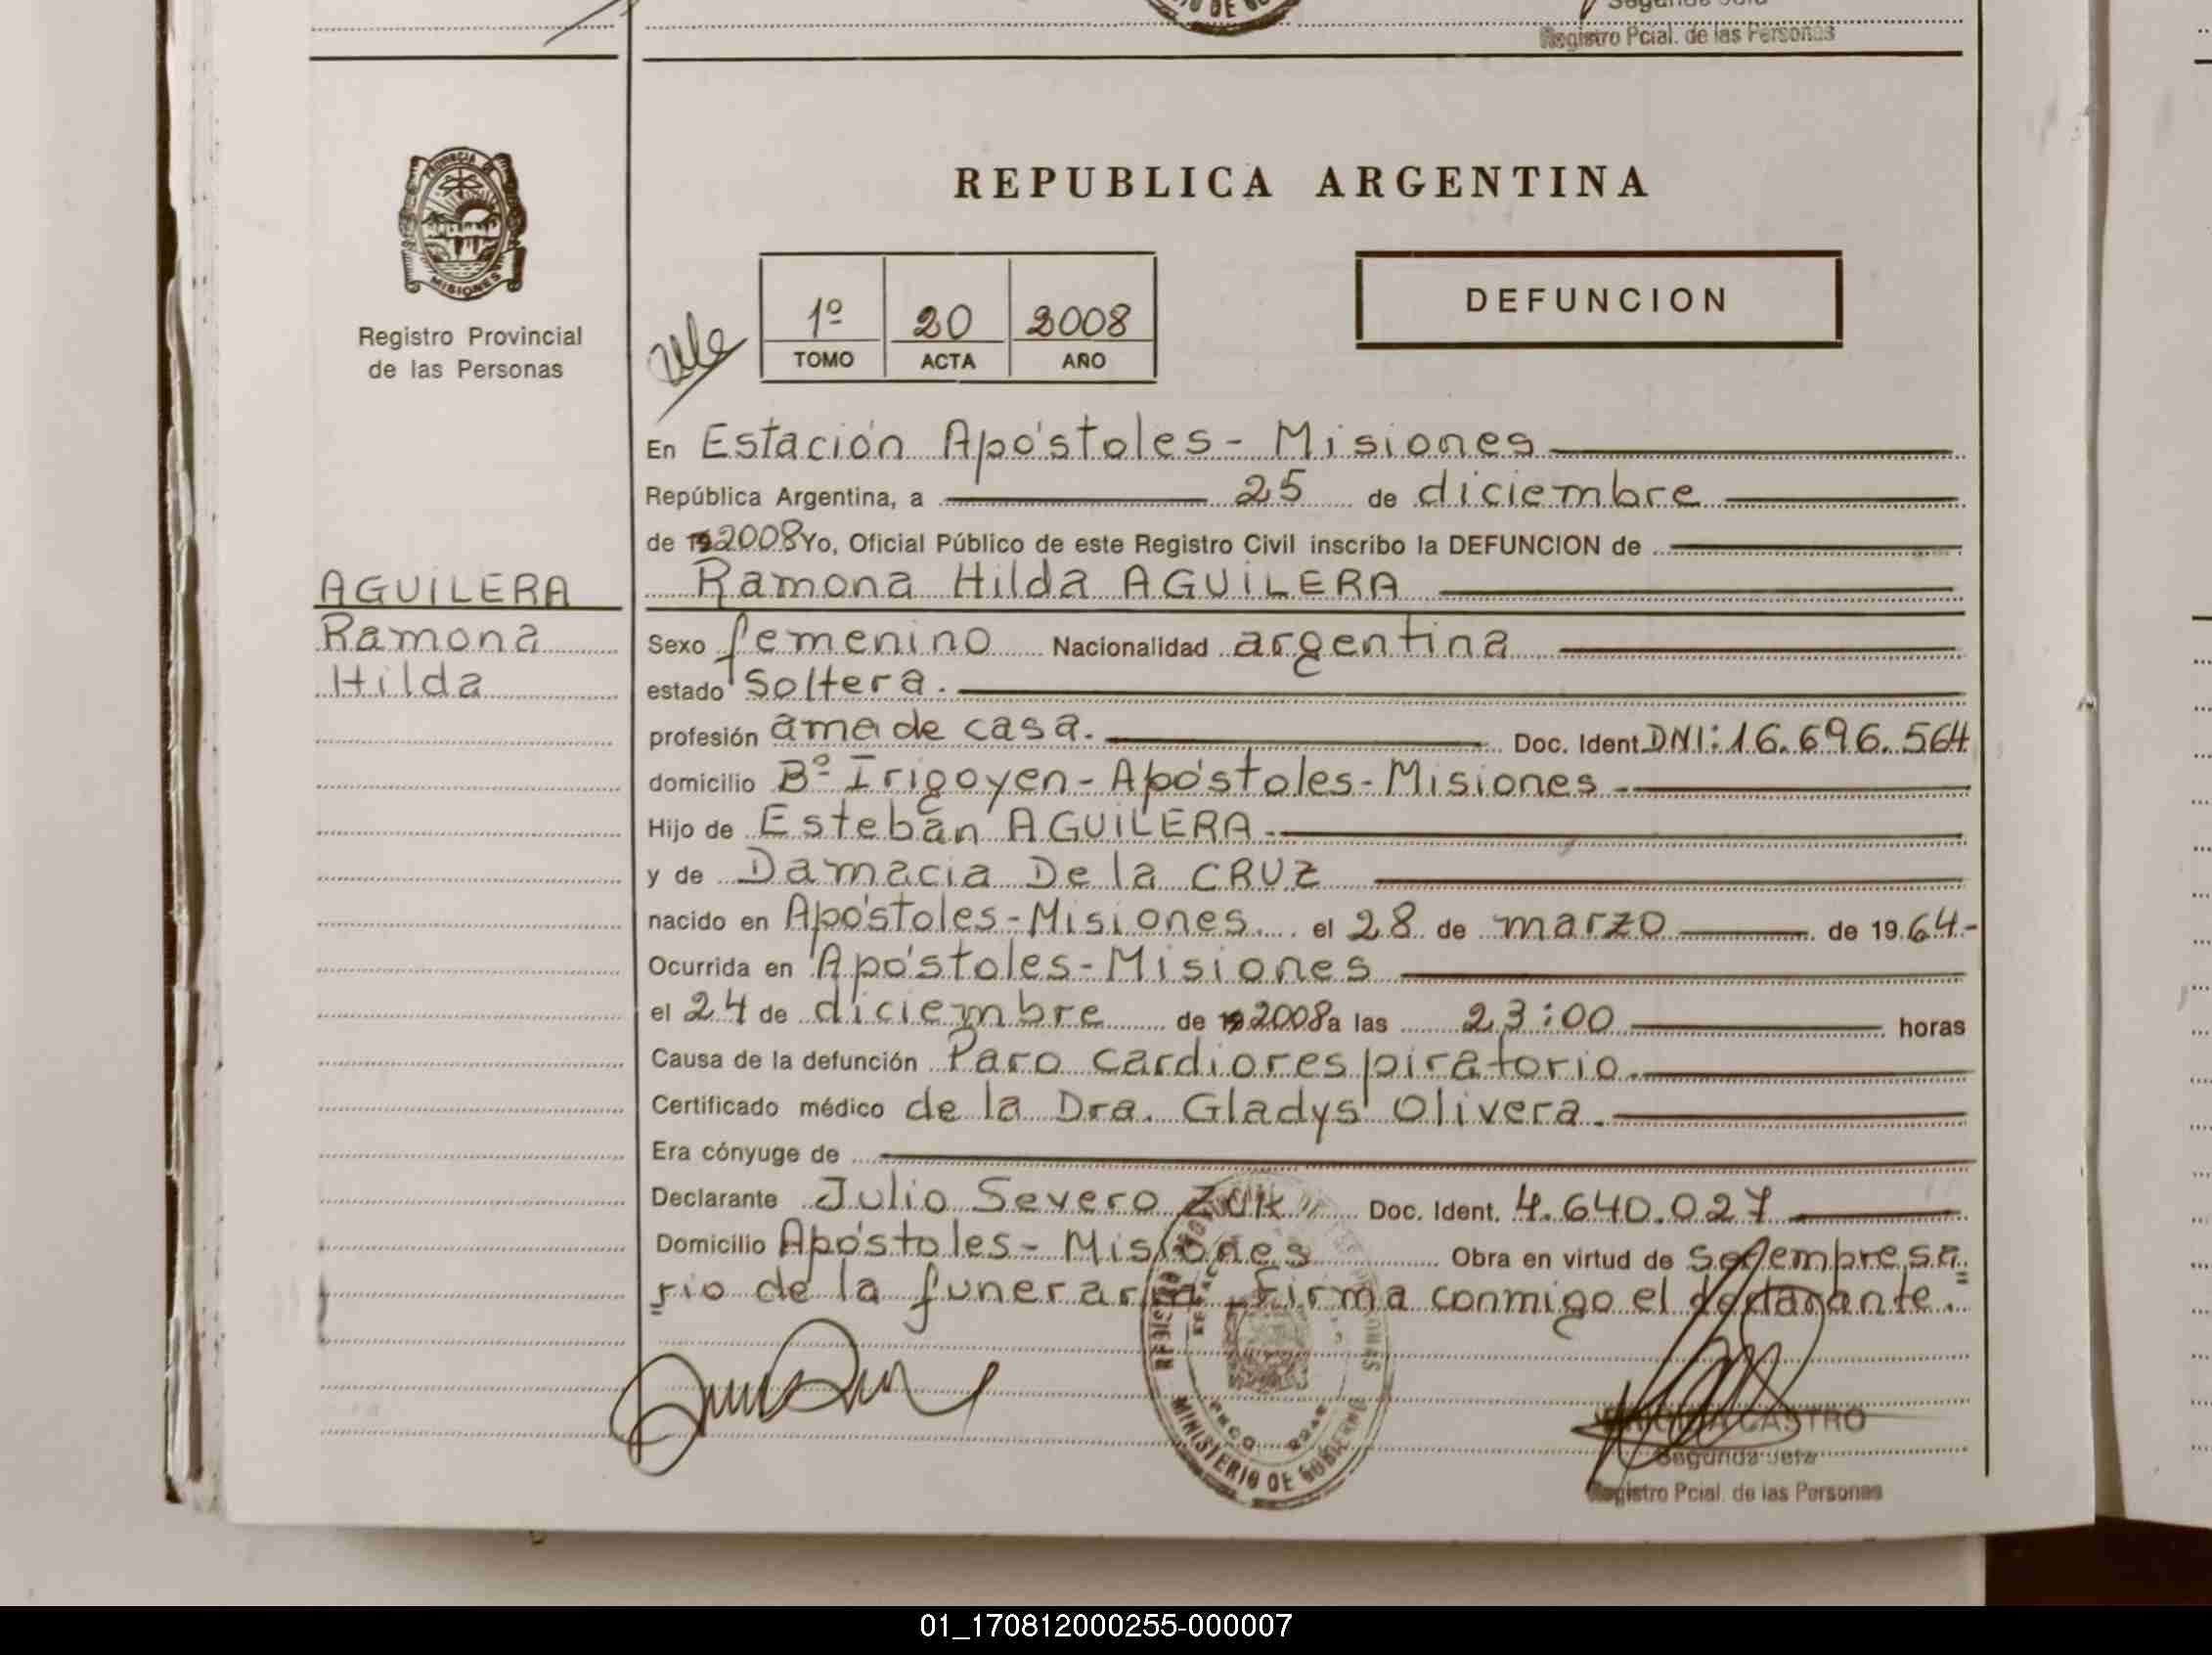 Registro Pcial. de las Personas
PROVINCIA DE
MISIONES
Registro Provincial
de las Personas
REPUBLICA ARGENTINA
1º 20 2008
TOMO ACTA AÑO
DEFUNCION
En Estación Apóstoles - Misiones
República Argentina, a 25 de diciembre
de 19 2008 Yo, Oficial Público de este Registro Civil inscribo la DEFUNCION de
Ramona Hilda AGUILERA
AGUILERA
Ramona
Hilda
Sexo femenino Nacionalidad argentina
estado soltera.
profesión ama de casa. Doc. Ident. DNI: 16.696.564
domicilio Bº Irigoyen - Apóstoles - Misiones -
Hijo de Esteban AGUILERA -
y de Damacia De la CRUZ
nacido en Apóstoles - Misiones el 28 de marzo de 1964.-
Ocurrida en Apóstoles - Misiones
el 24 de diciembre de 19 2008 a las 23:00 horas
Causa de la defunción Paro cardiorespiratorio.
Certificado médico de la Dra. Gladys Olivera.
Era cónyuge de
Declarante Julio Severo Zuk Doc. Ident. 4.640.027
Domicilio Apóstoles - Misiones Obra en virtud de ser empresa
rio de la funeraria. Firma conmigo el declarante.=
MINISTERIO DE GOBIERNO
CASTRO
Segunda Jefa
Registro Pcial. de las Personas
01_170812000255-000007